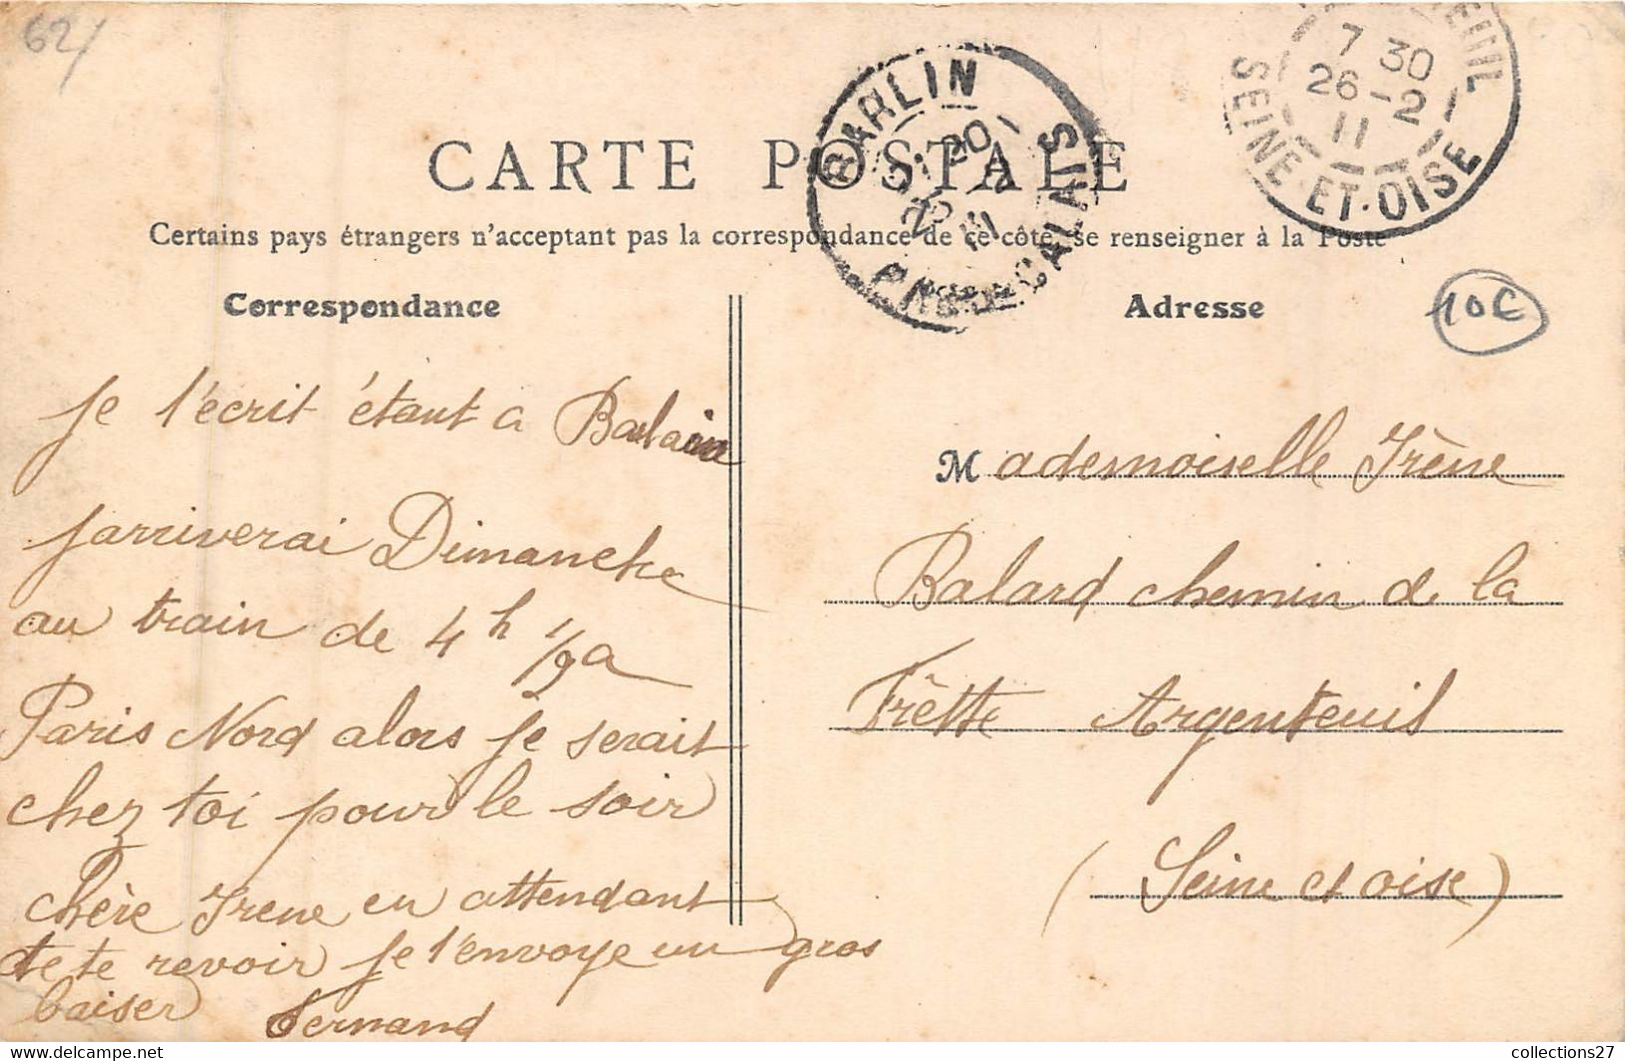 62/
BARLIN
PAS-DE-CALAIS
7 30
26-2
11
SEINE-ET-OISE
CARTE POSTALE
Certains pays étrangers n'acceptant pas la correspondance de ce côté, se renseigner à la Poste
Correspondance
Je t'écrit étant a
Jarriverai Dimanche
au train de 4h 1/2 a
Paris Nord alors je serait
chez toi pour le soir
Chère Irene en attendant
de te revoir je t'envoye un gros
baiser Fernand
Adresse
10€
Mademoiselle Irène
Balard chemin de la
Frètte Argenteuil
(Seine et oise)
collections27